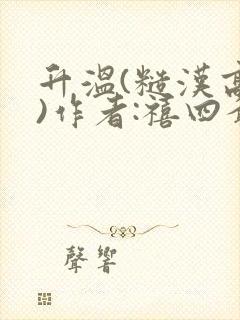 升溫(糙漢高
)作者:禧四
聲響